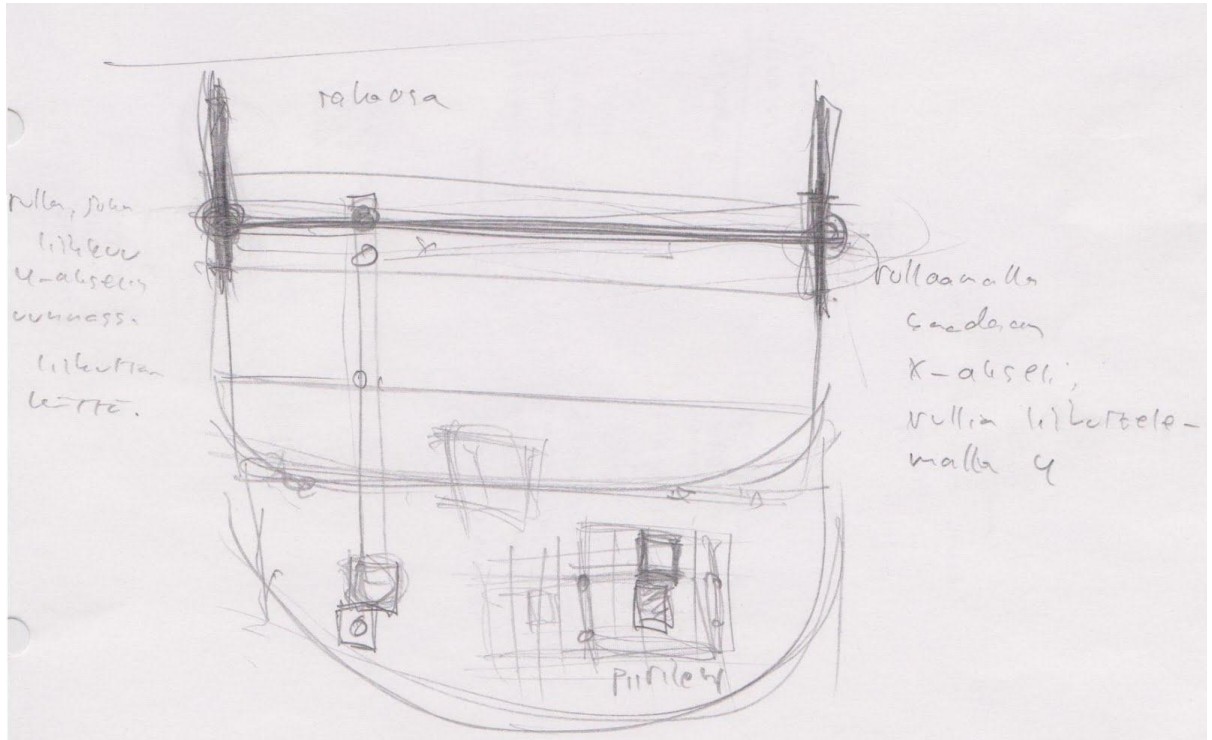 takaosa
rulla, joka
liikkuu
y-akselin
suunnassa.
liikuttaa
kättä.
rullaamalla
saadaan
x-akseli,
rullia liikuttele-
malla y
x
piirilevy